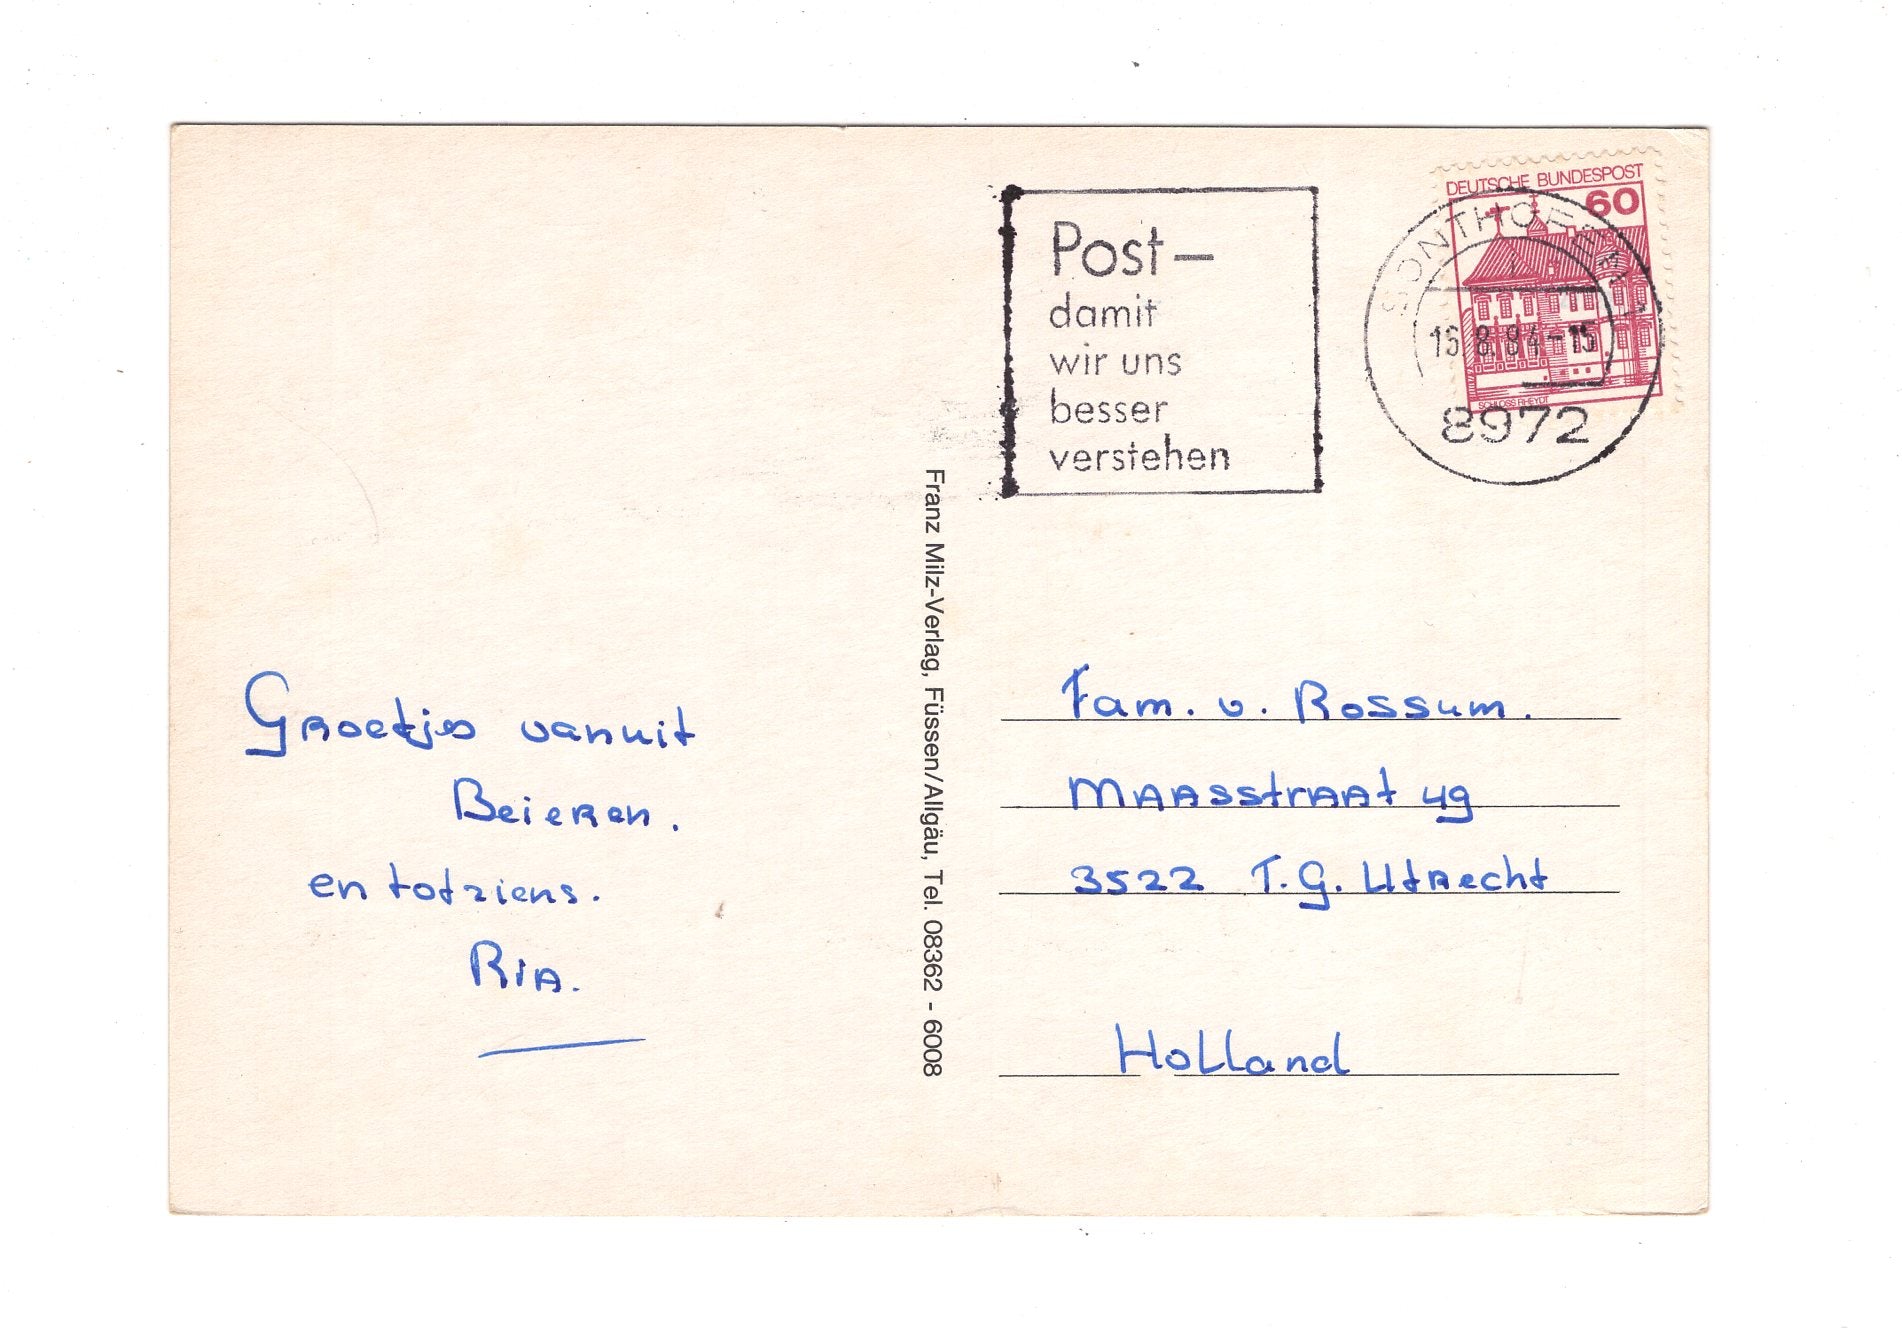 Post –
damit
wir uns
besser
verstehen
DEUTSCHE BUNDESPOST
60
SCHLOSS RHEYDT
SONTHOFEN
16.8.84-15
8972
Franz Milz-Verlag, Füssen/Allgäu, Tel. 08362 - 6008
Groetjes vanuit
Beieren.
en totziens.
Ria.
Fam. v. Rossum.
Maasstraat 49
3522 T.G. Utrecht
Holland